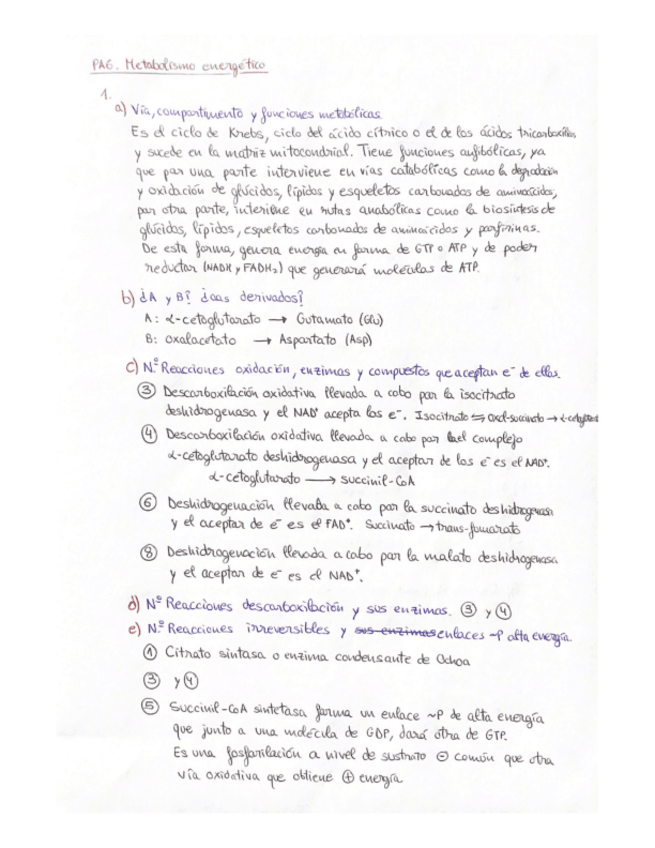 PA6. Metabolismo energético
1.
a) Vía, compartimento y funciones metabólicas
Es el ciclo de Krebs, ciclo del ácido cítrico o el de los ácidos tricarboxílicos
y sucede en la matriz mitocondrial. Tiene funciones anfibólicas, ya
que por una parte interviene en vías catabólicas como la degradación
y oxidación de glúcidos, lípidos y esqueletos carbonados de aminoácidos,
por otra parte, interviene en rutas anabólicas como la biosíntesis de
glúcidos, lípidos, esqueletos carbonados de aminoácidos y porfirinas.
De esta forma, genera energía en forma de GTP o ATP y de poder
reductor (NADH y FADH₂) que generará moléculas de ATP.
b) ¿A y B? ¿aas derivados?
A: α-cetoglutarato → Gutamato (Glu)
B: oxalacetato → Aspartato (Asp)
c) N.º Reacciones oxidación, enzimas y compuestos que aceptan e⁻ de ellas.
③ Descarboxilación oxidativa llevada a cabo por la isocitrato
deshidrogenasa y el NAD⁺ acepta los e⁻. Isocitrato ⇆ oxal-succinato → α-cetoglutarato
④ Descarboxilación oxidativa llevada a cabo por el complejo
α-cetoglutarato deshidrogenasa y el aceptor de los e⁻ es el NAD⁺.
α-cetoglutarato → succinil-CoA
⑥ Deshidrogenación llevada a cabo por la succinato deshidrogenasa
y el aceptor de e⁻ es el FAD⁺. Succinato → trans-fumarato
⑧ Deshidrogenación llevada a cabo por la malato deshidrogenasa
y el aceptor de e⁻ es el NAD⁺.
d) Nº Reacciones descarboxilación y sus enzimas. ③ y ④
e) N.º Reacciones irreversibles y sus enzimas enlaces ~P alta energía.
① Citrato sintasa o enzima condensante de Ochoa
③ y ④
⑤ Succinil-CoA sintetasa forma un enlace ~P de alta energía
que junto a una molécula de GDP, dará otra de GTP.
Es una fosforilación a nivel de sustrato ⊖ común que otra
vía oxidativa que obtiene ⊕ energía